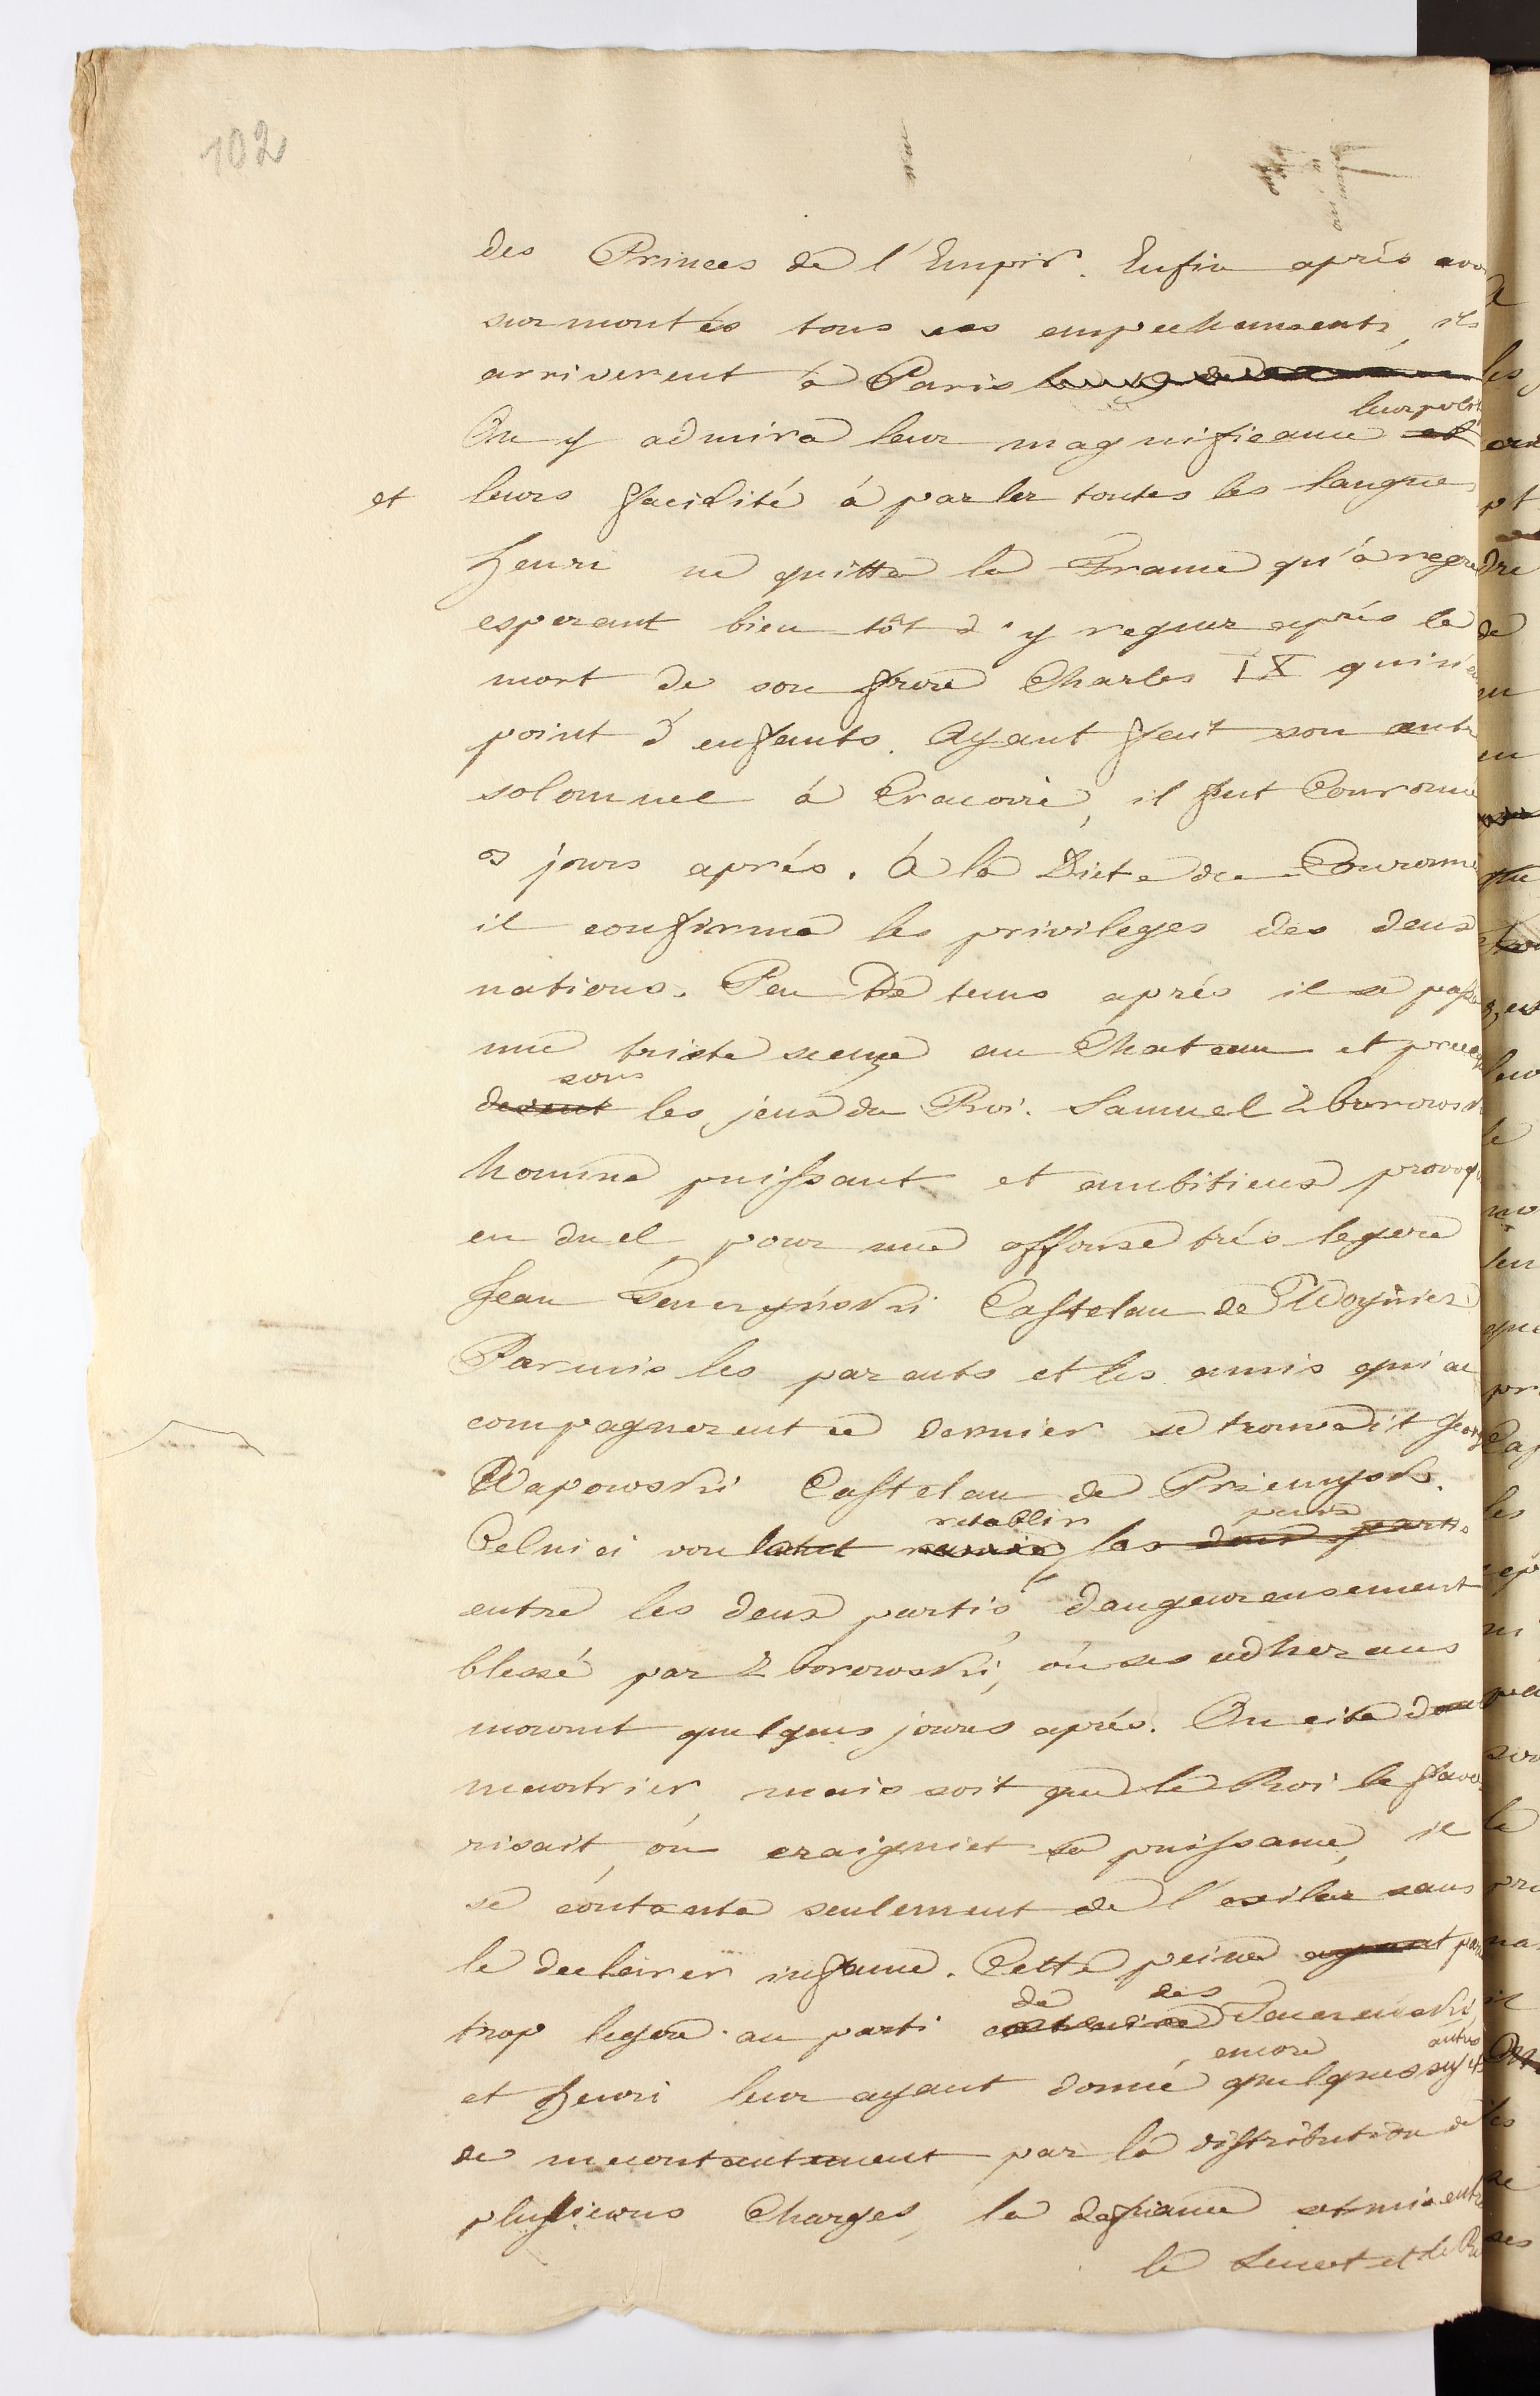 102
des Princes de l'Empire. Enfin après avo
surmontés tous ces empechements, ils
arriverent à Paris
leur polit
On y admira leur magnificance et
et leurs facilité à parler toutes les langues
Henri ne quitta la France qu'à regre
esperant bien tôt d'y regner après la
mort de son frere Charles IX qui n'a
point d'enfants. Ayant fait son entr
solomnel à Cracovie, il fut Couronné
3 jours après. à la Diete du Couronn
il confirma les privileges des deux
nations. Peu De tems après il se passa
une triste scene au Chateau et presque
sous
devant les jeux du Roi. Samuel Zborowsk
homme puissant et ambitieux provoq
en duel pour une offense très legere
Jean Tenczyński Castelan de Woynicz
Parmis les parents et les amis qui ac
compagnerent ce dernier se trouvait Georg
Wapowski Castelan de Przemysl.
retablir paix
Celui ci voulant les deux partis
entre les deux partis, dangeureusement
blessé par Zborowski, où ses adherans
mourut quelques jours après. On cita
meurtrier, mais soit que le Roi le favo
risait, où craigniet sa puissance, il
se contanta seulement de l'exiler sans
le declairer infame. Cette peine ayant par
de des
trop legere au parti contraire Tenczenski,
encore autres
et Henri leur ayant donné quelques sujet
de mecontantement par la distribution de
plusieurs Charges, la defiance se mis entre
le Senat et le Ro